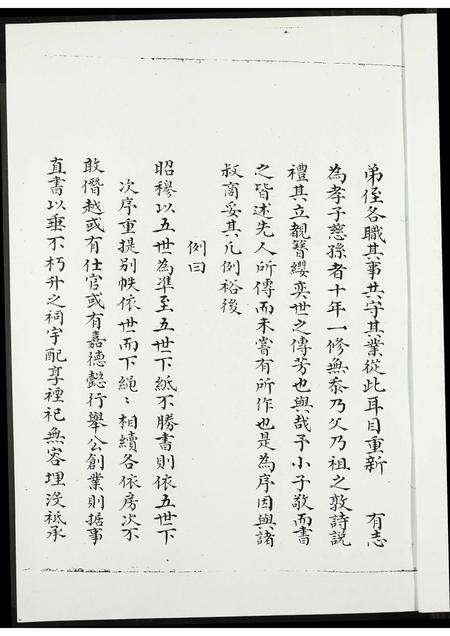 弟侄各職其事共守其業從此耳目重新　有志
為孝子慈孫者十年一修無忝乃父乃祖之敦詩說
禮其立覩簪纓奕世之傳芳也與哉予小子敬而書
之皆述先人所傳而未嘗有所作也是為序因與諸
叔商妥其凡例裕後
例曰
昭穆以五世為準至五世下紙不勝書則依五世下
次序重提別帙依世而下繩〻相續各依房次不
敢僭越或有仕官或有嘉德懿行舉公創業則据事
直書以垂不朽升之祠宇配享禋祀無容埋沒祗承